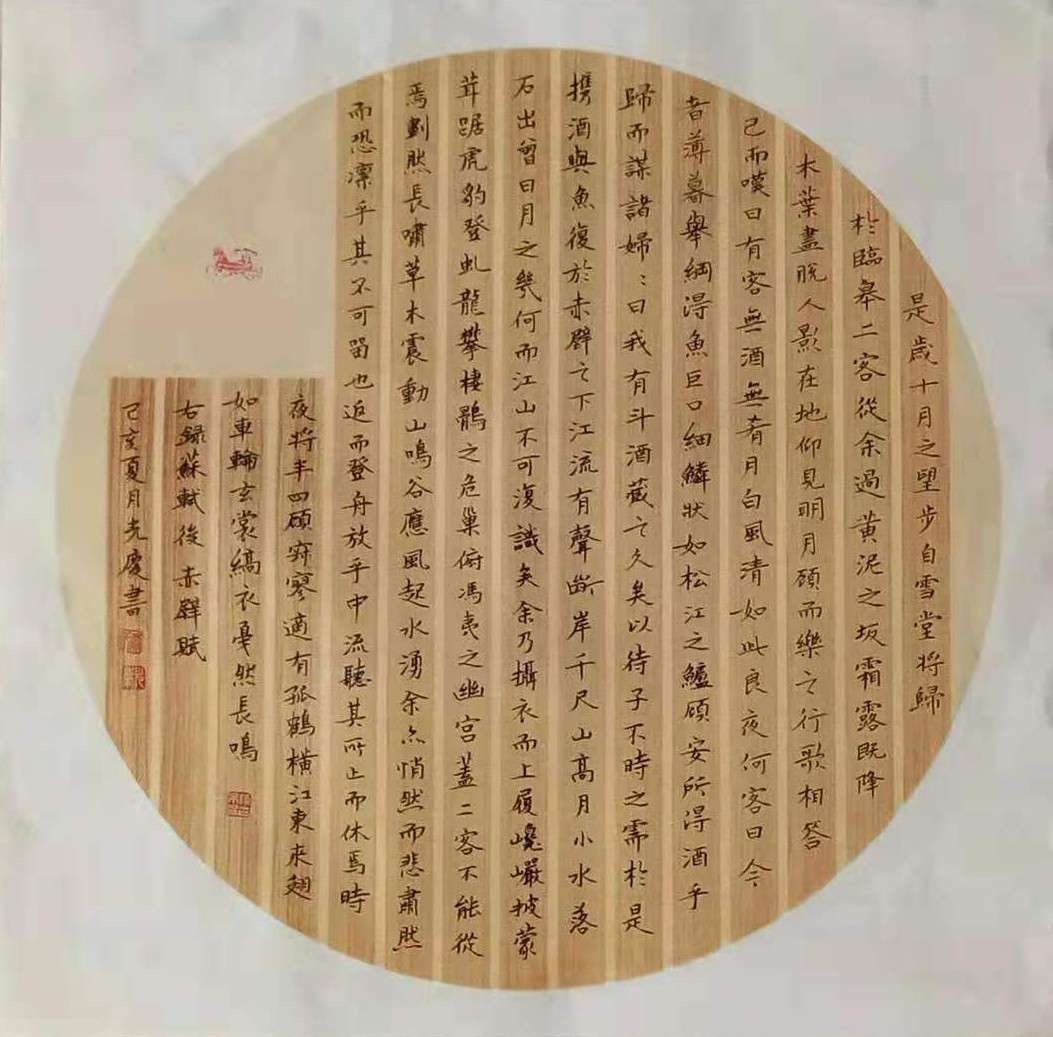 是歲十月之望步自雪堂將歸
於臨皋二客從余過黃泥之坂霜露既降
木葉盡脫人影在地仰見明月顧而樂之行歌相答
已而嘆曰有客無酒無肴月白風清如此良夜何客曰今
者薄暮舉網得魚巨口細鱗狀如松江之鱸顧安所得酒乎
歸而謀諸婦〻曰我有斗酒藏之久矣以待子不時之需於是
攜酒與魚復於赤壁之下江流有聲斷岸千尺山高月小水落
石出曾日月之幾何而江山不可復識矣余乃攝衣而上履巉巖披蒙
茸踞虎豹登虬龍攀棲鶻之危巢俯馮夷之幽宮蓋二客不能從
焉劃然長嘯草木震動山鳴谷應風起水湧余亦悄然而悲肅然
而恐凜乎其不可留也返而登舟放乎中流聽其所止而休焉時
夜將半四顧寂寥適有孤鶴橫江東來翅
如車輪玄裳縞衣戛然長鳴
右錄蘇軾後赤壁賦
己亥夏月光慶書